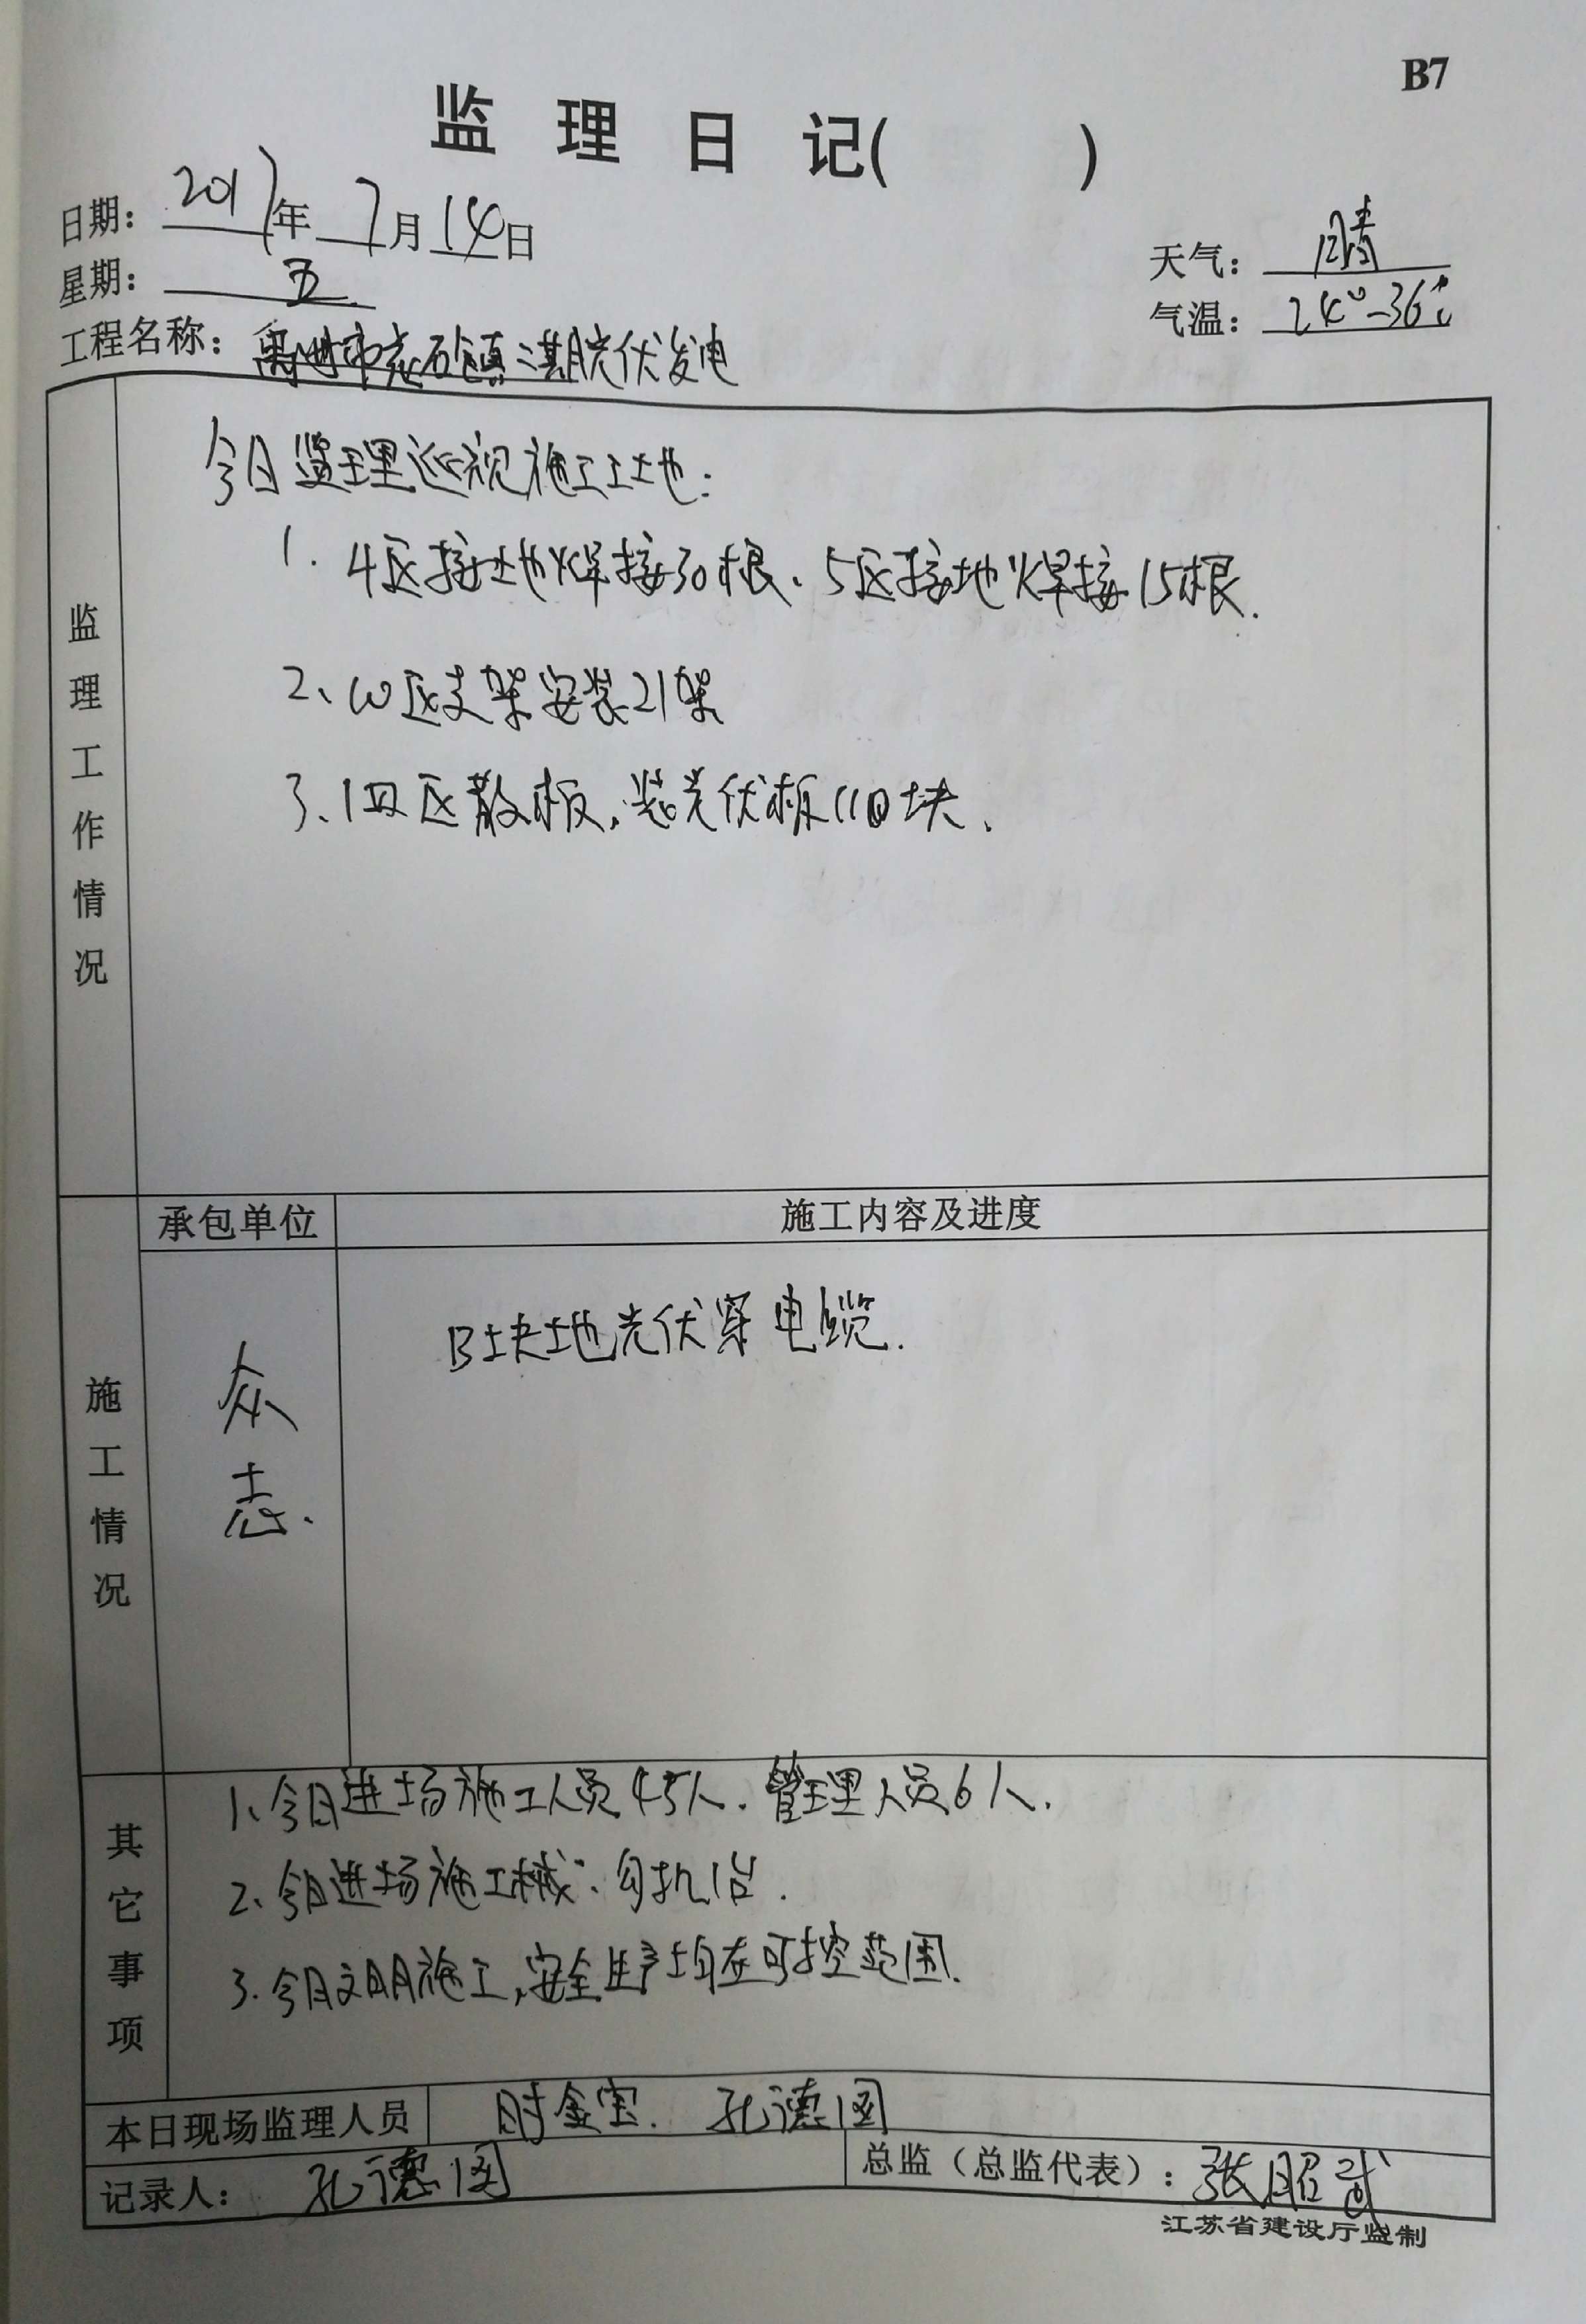 B7
监理日记( )
日期：2017年7月14日
天气：晴
星期：五
气温：24°-36℃
工程名称：禹州市苌石镇二期光伏发电
监理工作情况
今日监理巡视施工工地：
1. 4区接地焊接30根、5区接地焊接15根.
2、10区支架安装21架
3、1 区散板,装光伏板110块.
施工情况
承包单位
施工内容及进度
众志.
B块地光伏穿电缆.
其它事项
1、今日进场施工人员45人.管理人员6人.
2、今日进场施工械:勾机1台.
3.今日文明施工,安全生产均在可控范围.
本日现场监理人员 时金宝. 孔德图
记录人：孔德图
总监（总监代表）：张昭武
江苏省建设厅监制